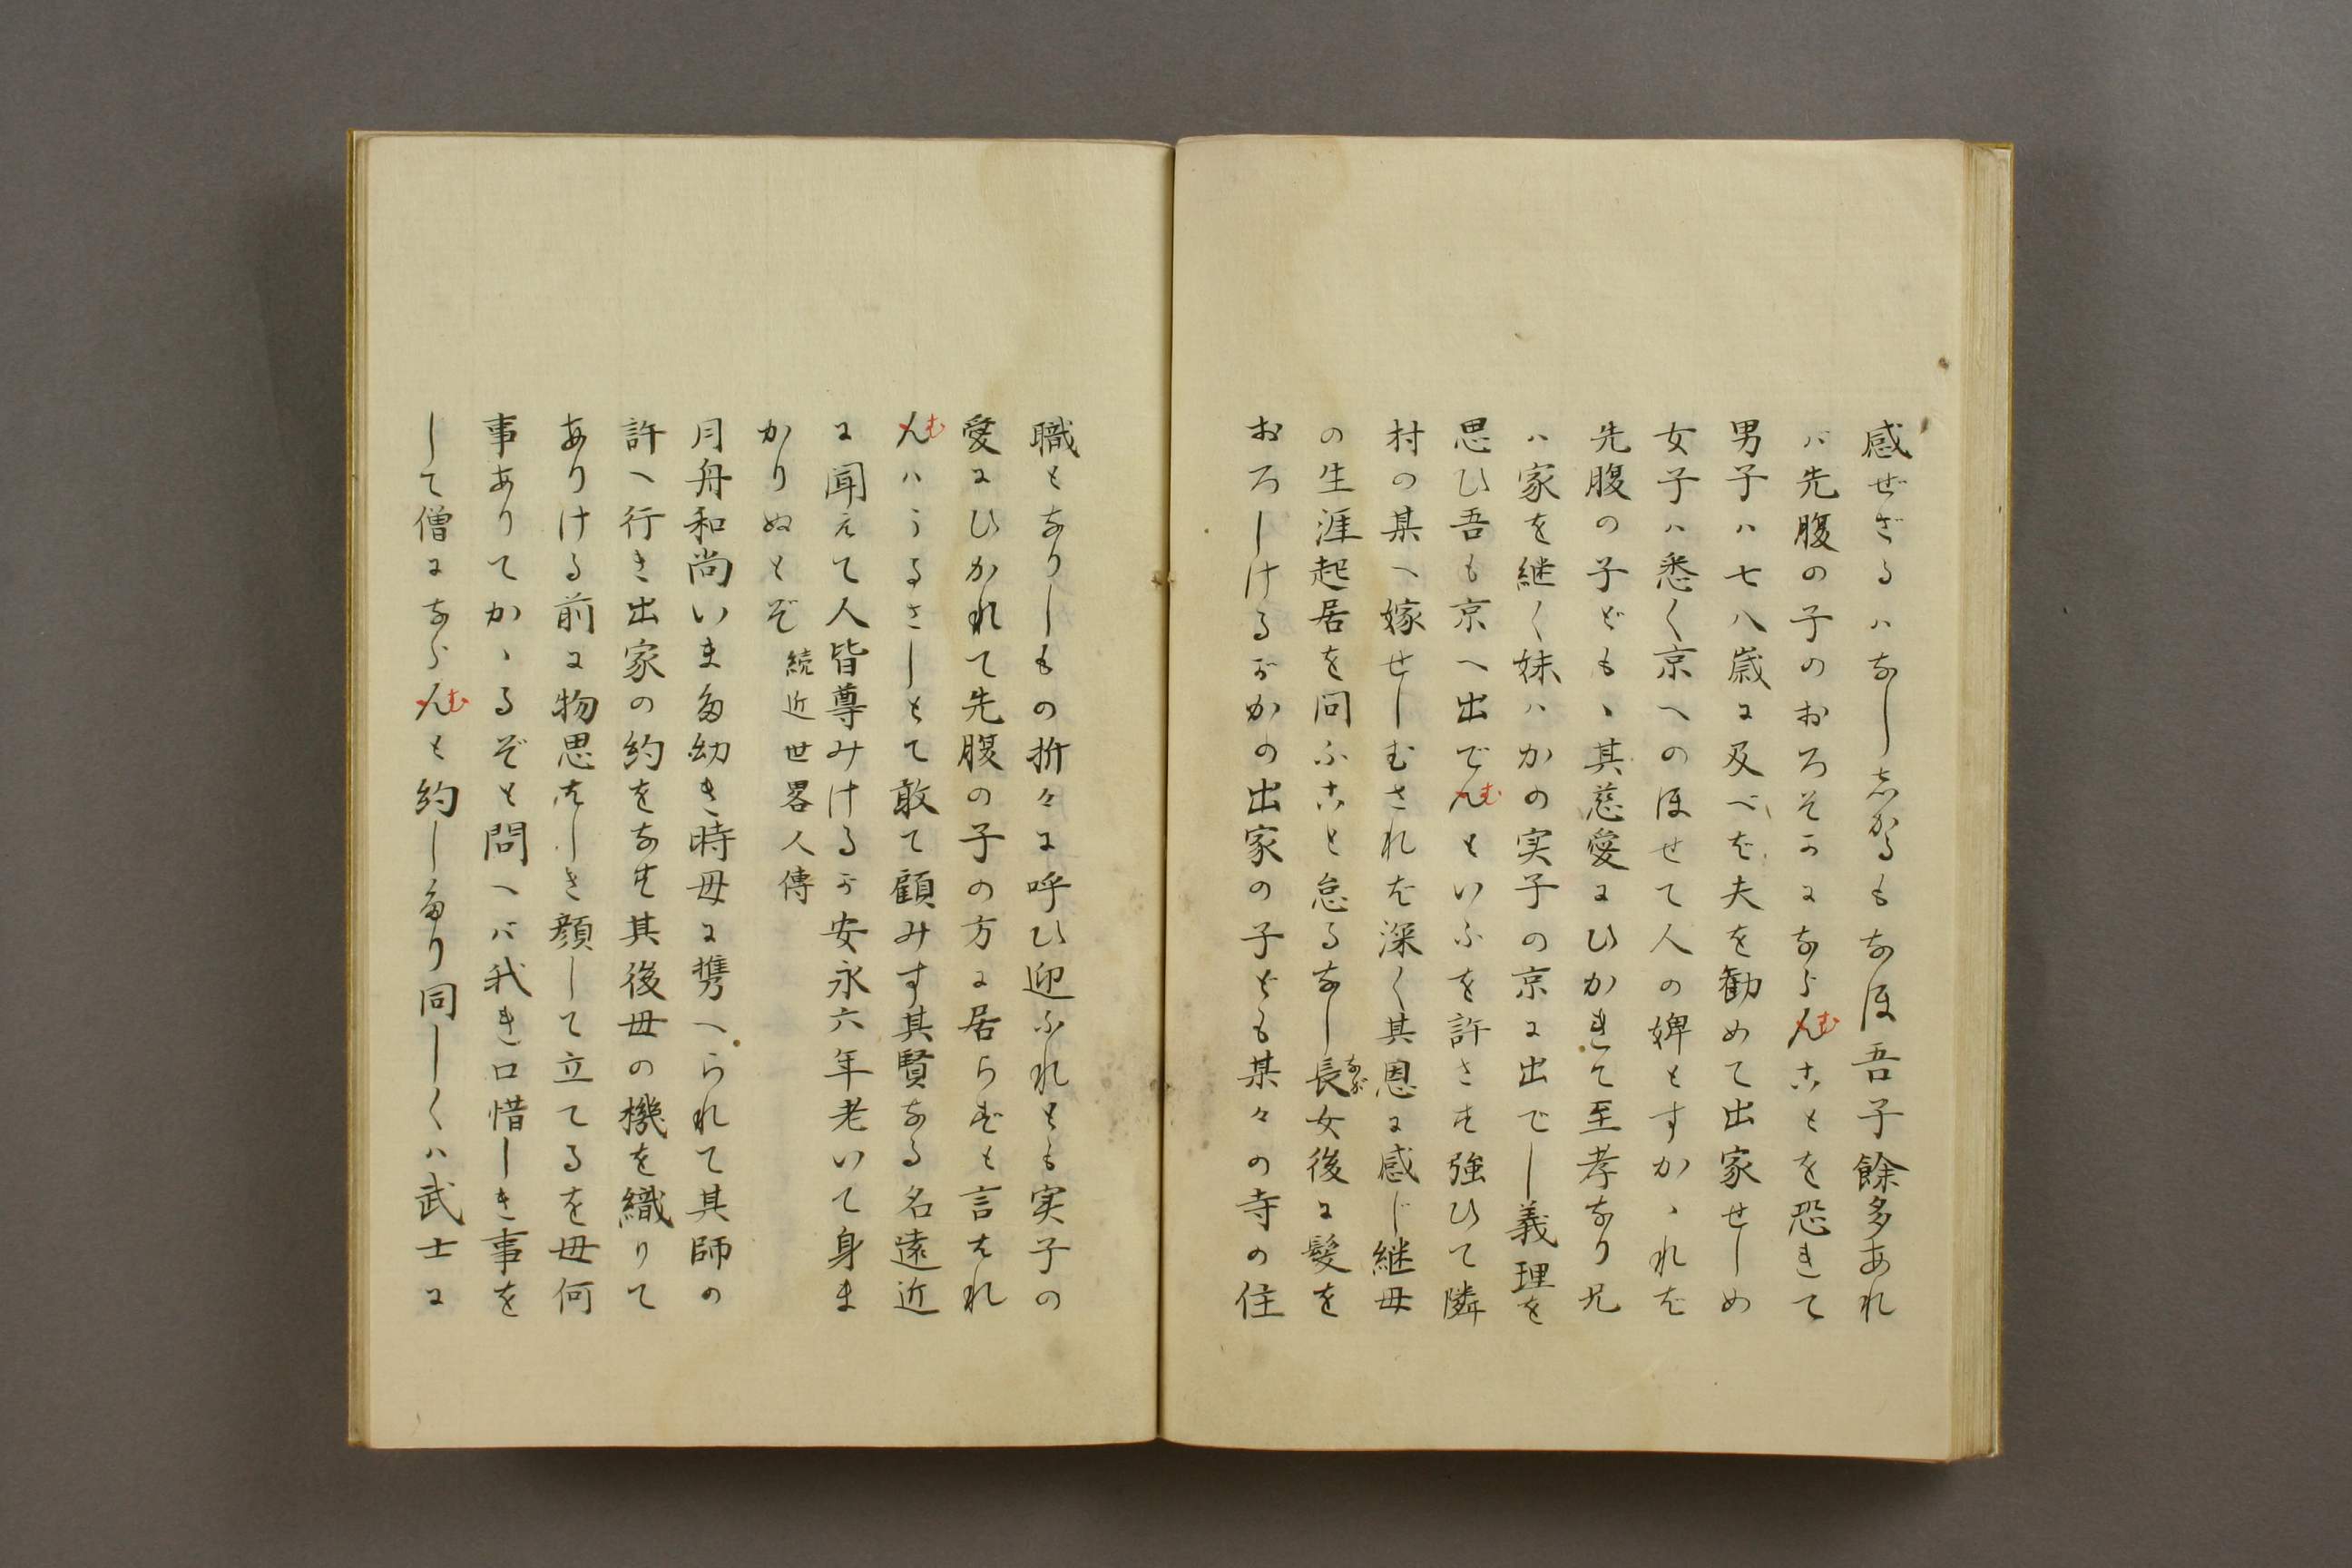 感ぜざるハなししかるもなほ吾子餘多あれ
バ先腹の子のおろそかにならんむことを恐きて
男子ハ七八歳に及べば夫を勧めて出家せしめ
女子ハ悉く京へのほせて人の婢とすかゝれば
先腹の子どもゝ其慈愛にひかきて至孝なり兄
ハ家を継く妹ハかの実子の京に出でし義理を
思ひ吾も京へ出でんむといふを許さず強ひて隣
村の某へ嫁せしむされば深く其恩に感じ継母
の生涯起居を問ふこと怠るなし長女後に髪を
おろしけるがかの出家の子ども某々の寺の住
職となりしもの折々に呼ひ迎ふれとも実子の
愛にひかれて先腹の子の方に居らずと言はれ
んむハうるさしとて敢て顧みす其賢なる名遠近
に聞えて人皆尊みけるが安永六年老いて身ま
かりぬとぞ 続近世畧人傳
月舟和尚いまだ幼き時母に携へられて其師の
許へ行き出家の約をなす其後母の機を織りて
ありける前に物思はしき顔して立てるを母何
事ありてかゝるぞと問へバ我き口惜しき事を
して僧にならんむと約したり同しくハ武士に